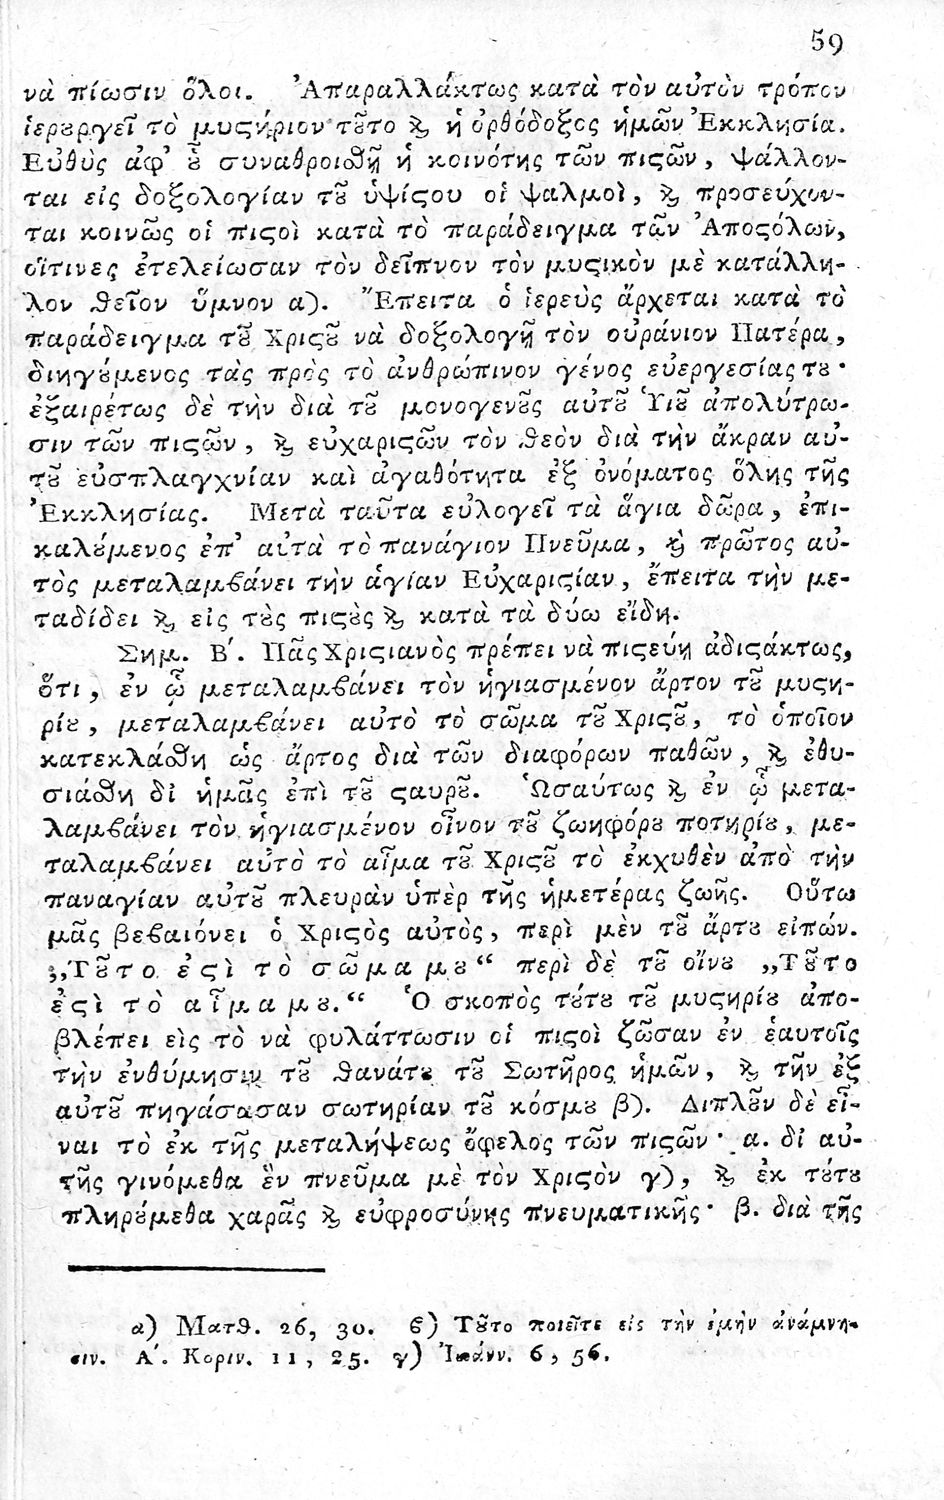 59
νὰ πίωσιν ὅλοι. Ἀπαραλλάκτως κατὰ τὸν αὐτὸν τρόπον
ἱερȣργεῖ τὸ μυϛήριον τȣ͂το ϗ ἡ ὀρθόδοξος ἡμῶν Ἐκκλησία.
Εὐθὺς ἀφ’ ȣ̔͂ συναθροιϑῇ ἡ κοινότης τῶν πιϛῶν, ψάλλον-
ται εἰς δοξολογίαν τȣ͂ ὑψίϛου οἱ ψαλμοὶ, ϗ προσεύχον-
ται κοινῶς οἱ πιϛοὶ κατὰ τὸ παράδειγμα τῶν Ἀποϛόλων,
οἵτινες ἐτελείωσαν τὸν δεῖπνον τὸν μυϛικὸν μὲ κατάλλη-
λον ϑεῖον ὕμνον α). Ἔπειτα ὁ ἱερεὺς ἄρχεται κατὰ τὸ
παράδειγμα τȣ͂ Χριϛȣ͂ νὰ δοξολογῇ τὸν οὐράνιον Πατέρα,
διηγȣ́μενος τὰς πρὸς τὸ ἀνθρώπινον γένος εὐεργεσίας τȣ·
ἐξαιρέτως δὲ τὴν διὰ τȣ͂ μονογενȣ͂ς αὐτȣ͂ Ὑιȣ͂ ἀπολύτρω-
σιν τῶν πιϛῶν, ϗ εὐχαριϛῶν τὸν ϑεὸν διὰ τὴν ἄκραν αὐ-
τȣ͂ εὐσπλαγχνίαν καὶ ἀγαθότητα ἐξ ὀνόματος ὅλης τῆς
Ἐκκλησίας. Μετὰ ταῦτα εὐλογεῖ τὰ ἅγια δῶρα, ἐπι-
καλȣ́μενος ἐπ’ αὐτὰ τὸ πανάγιον Πνεῦμα, ϗ πρῶτος αὐ-
τὸς μεταλαμϐάνει τὴν ἁγίαν Εὐχαριϛίαν, ἔπειτα τὴν με-
ταδίδει ϗ εἰς τȣ̀ς πιϛȣ̀ς ϗ κατὰ τὰ δύω εἴδη.
Σημ. Β΄. Πᾶς Χριϛιανὸς πρέπει νὰ πιϛεύῃ ἀδιϛάκτως,
ὅτι, ἐν ᾧ μεταλαμϐάνει τὸν ἡγιασμένον ἄρτον τȣ͂ μυϛη-
ρίȣ, μεταλαμϐάνει αὐτὸ τὸ σῶμα τȣ͂ Χριϛȣ͂, τὸ ὁποῖον
κατεκλάϑη ὡς ἄρτος διὰ τῶν διαφόρων παθῶν, ϗ ἐθυ-
σιάϑη δἰ ἡμᾶς ἐπὶ τȣ͂ ϛαυρȣ͂. Ὡσαύτως ϗ ἐν ᾧ μετα-
λαμϐάνει τὸν ἡγιασμένον οἶνον τȣ͂ ζωηφόρȣ ποτηρίȣ, με-
ταλαμϐάνει αὐτὸ τὸ αἷμα τȣ͂ Χριϛȣ͂ τὸ ἐκχυθὲν ἀπὸ τὴν
παναγίαν αὐτȣ͂ πλευρὰν ὑπὲρ τῆς ἡμετέρας ζωῆς. Οὕτω
μᾶς βεϐαιόνει ὁ Χριϛὸς αὐτὸς, περὶ μὲν τȣ͂ ἄρτȣ εἰπών.
„Τȣ͂το ἐϛὶ τὸ σῶμα μȣ“ περὶ δὲ τȣ͂ οἴνȣ „Τȣ͂το
ἐϛὶ τὸ αἷμα μȣ.“ Ὁ σκοπὸς τȣ́τȣ τȣ͂ μυϛηρίȣ ἀπο-
βλέπει εἰς τὸ νὰ φυλάττωσιν οἱ πιϛοὶ ζῶσαν ἐν ἑαυτοῖς
τὴν ἐνθύμησιν τȣ͂ ϑανάτȣ τȣ͂ Σωτῆρος ἡμῶν, ϗ τὴν ἐξ
αὐτȣ͂ πηγάσασαν σωτηρίαν τȣ͂ κόσμȣ β). Διπλȣ͂ν δὲ εἶ-
ναι τὸ ἐκ τῆς μεταλήψεως ὄφελος τῶν πιϛῶν· α. δἰ αὐ-
τῆς γινόμεθα ἓν πνεῦμα μὲ τὸν Χριϛὸν γ), ϗ ἐκ τȣ́τȣ
πληρȣ́μεθα χαρᾶς ϗ εὐφροσύνης πνευματικῆς· β. διὰ τῆς
α) Ματϑ. 26, 30. ϐ) Τȣ͂το ποιεῖτε εἰς τὴν ἐμὴν ἀνάμνη-
σιν. Α΄. Κοριν. 11, 25. γ) Ἰωάνν. 6, 56.